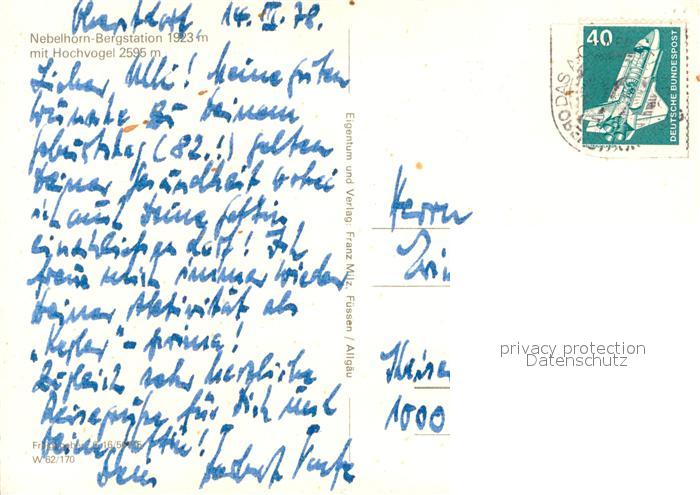 Oberstdorf 14. IX. 78.
Nebelhorn-Bergstation 1923 m
mit Hochvogel 2595 m
Lieber Ulli! Meine guten
Wünsche zu Deinem
Geburtstag (82.!) gelten
Deiner Gesundheit wobei
ich auch Deine Gattin
einschließen darf! Ich
freue mich immer wieder
Deiner Aktivität als
"Kegler" - prima!
Zugleich sehr herzliche
Reisegrüße für Dich und
Deine Gattin!
Dein
W 62/170
Eigentum und Verlag: Franz Milz, Füssen / Allgäu
40
DEUTSCHE BUNDESPOST
Herrn
1000
privacy protection
Datenschutz